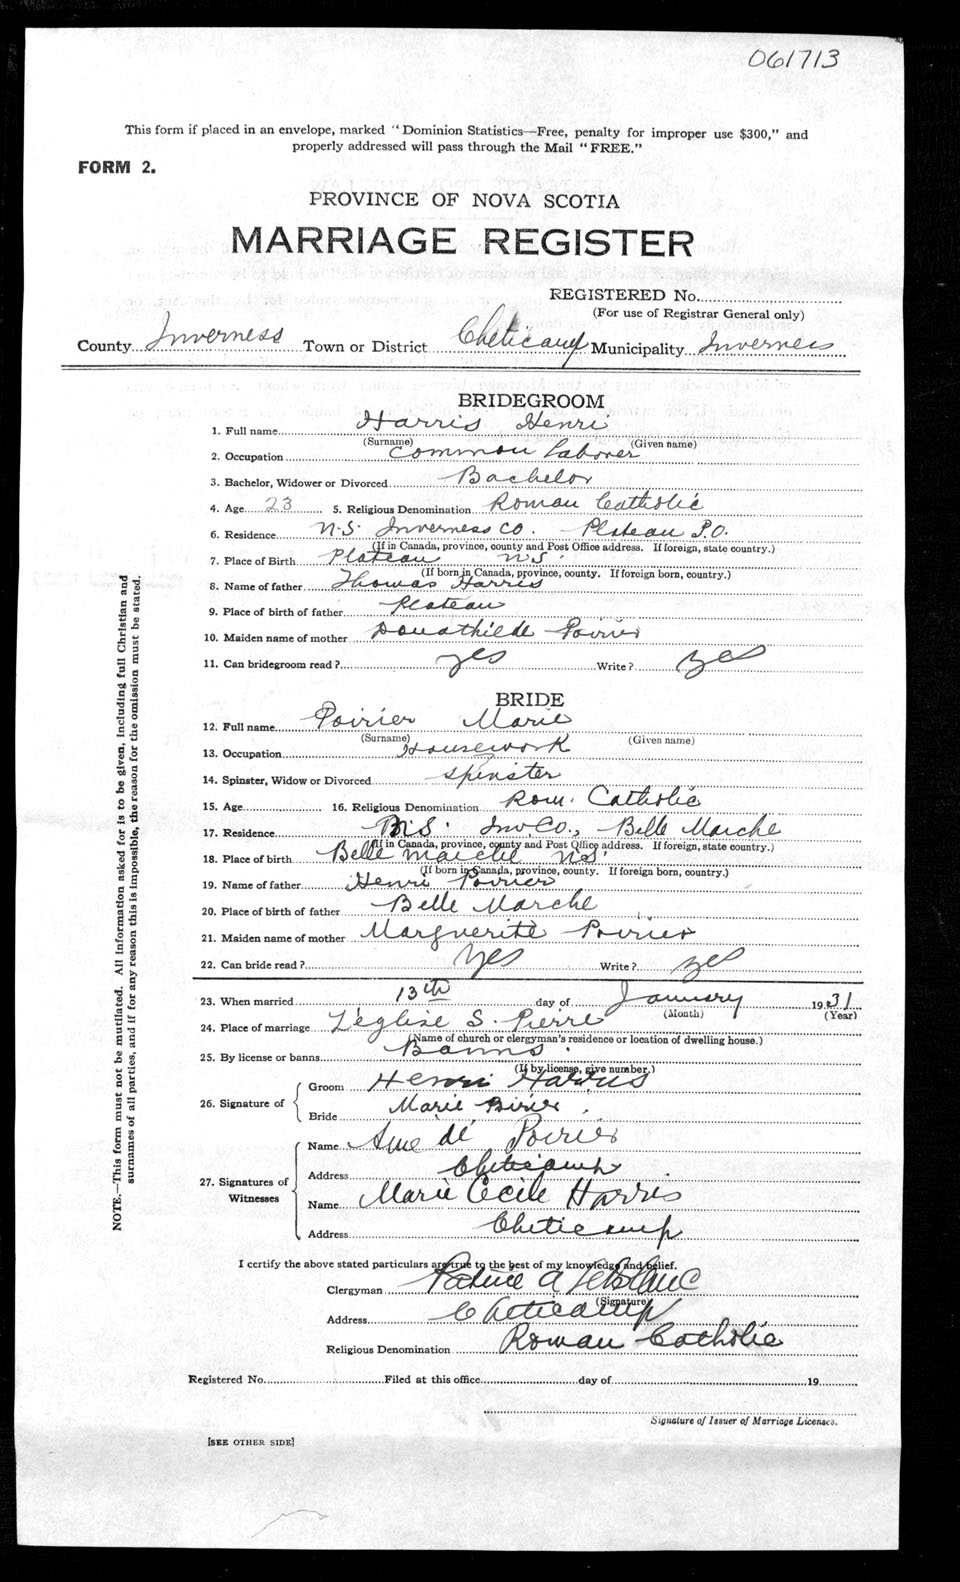 061713
This form if placed in an envelope, marked "Dominion Statistics—Free, penalty for improper use $300," and
properly addressed will pass through the Mail "FREE."
FORM 2.
PROVINCE OF NOVA SCOTIA
MARRIAGE REGISTER
REGISTERED No.
(For use of Registrar General only)
County Inverness Town or District Cheticamp Municipality Inverness
BRIDEGROOM
1. Full name Harris Henri
(Surname) (Given name)
2. Occupation Common Laborer
3. Bachelor, Widower or Divorced Bachelor
4. Age 23 5. Religious Denomination Roman Catholic
6. Residence N.S. Inverness Co. Plateau P.O.
(If in Canada, province, county and Post Office address. If foreign, state country.)
7. Place of Birth Plateau N.S.
(If born in Canada, province, county. If foreign born, country.)
8. Name of father Thomas Harris
9. Place of birth of father Plateau
10. Maiden name of mother Donathilde Poirier
11. Can bridegroom read? yes Write? yes
BRIDE
12. Full name Poirier Marie
(Surname) (Given name)
13. Occupation Housework
14. Spinster, Widow or Divorced spinster
15. Age 16. Religious Denomination Rom. Catholic
17. Residence N.S. Inv. Co., Belle Marche
(If in Canada, province, county and Post Office address. If foreign, state country.)
18. Place of birth Belle Marche N.S.
(If born in Canada, province, county. If foreign born, country.)
19. Name of father Henri Poirier
20. Place of birth of father Belle Marche
21. Maiden name of mother Marguerite Poirier
22. Can bride read? Yes Write? yes
23. When married 13th day of January 1931
(Month) (Year)
24. Place of marriage L'églize S. Pierre
(Name of church or clergyman's residence or location of dwelling house.)
25. By license or banns Banns.
(If by license, give number.)
26. Signature of
Groom Henri Harris
Bride Marie Poirier
27. Signatures of Witnesses
Name Amedé Poirier
Address Cheticamp
Name Marie Cecile Harris
Address Cheticamp
I certify the above stated particulars are true to the best of my knowledge and belief.
Clergyman A LeBlanc
(Signature)
Address Cheticamp
Religious Denomination Roman Catholic
Registered No. Filed at this office day of 19
Signature of Issuer of Marriage Licenses.
[SEE OTHER SIDE]
NOTE.—This form must not be mutilated. All information asked for is to be given, including full Christian and
surnames of all parties, and if for any reason this is impossible, the reason for the omission must be stated.